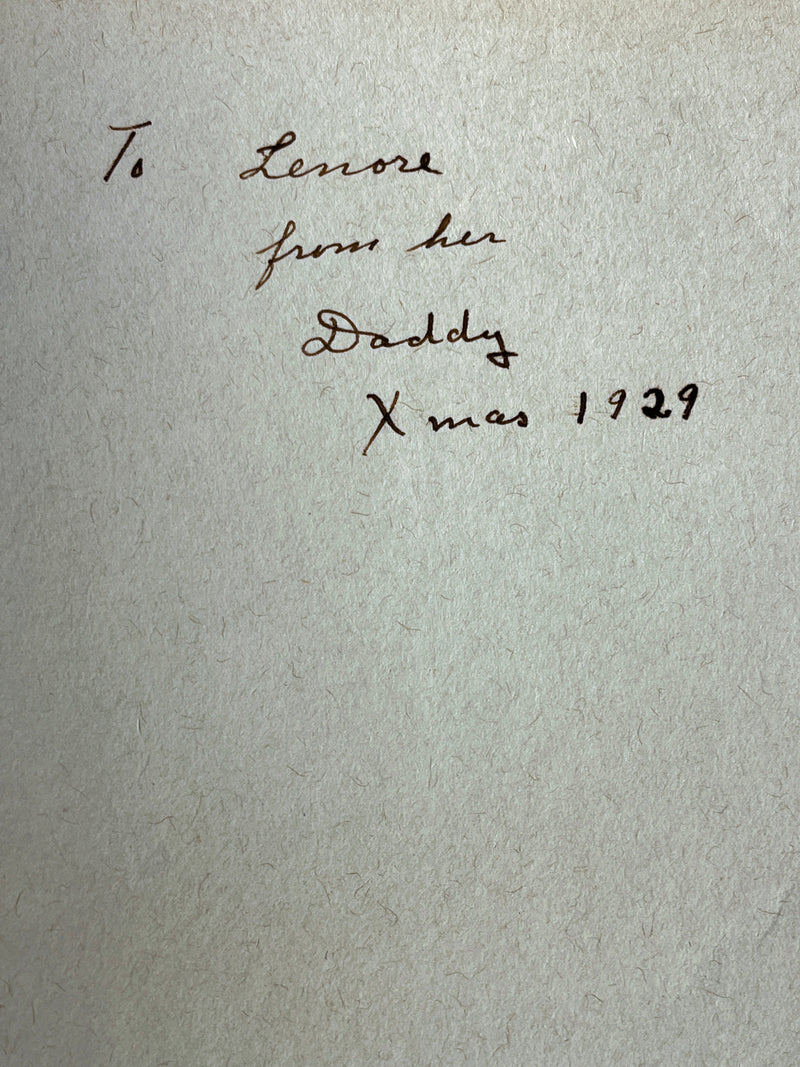 To Lenore
from her
Daddy
Xmas 1929